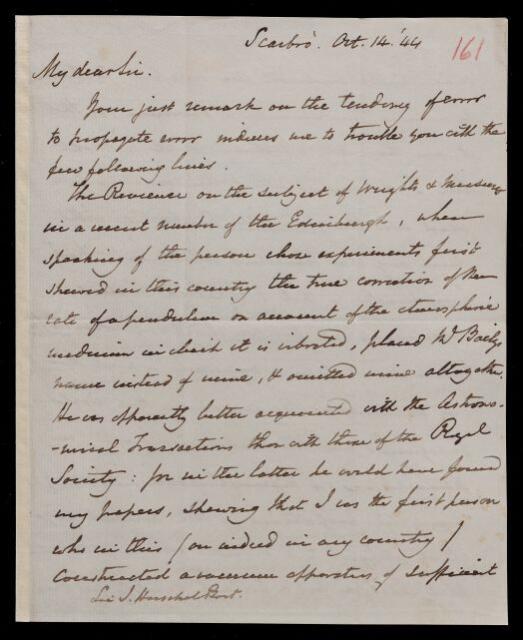 Scarbro'. Oct. 14. '44
161
My dear Sir.
Your just remark on the tendency of error
to propagate error induces me to trouble you with the
few following lines.
The Reviewer on the subject of Weights & Measures
in a recent number of the Edinburgh, when
speaking of the person whose experiments first
shewed in this country the true correction of the
rate of a pendulum on account of the atmospheric
medium in which it is vibrated, placed Mr Baily's
name instead of mine, & omitted mine altogether.
He was apparently better acquainted with the Astrono-
-mical Transactions than with those of the Royal
Society: for in the latter he would have found
my papers, shewing that I was the first person
who in this (or indeed in any country)
constructed a vacuum apparatus of sufficient
Sir J. Herschel Bart.